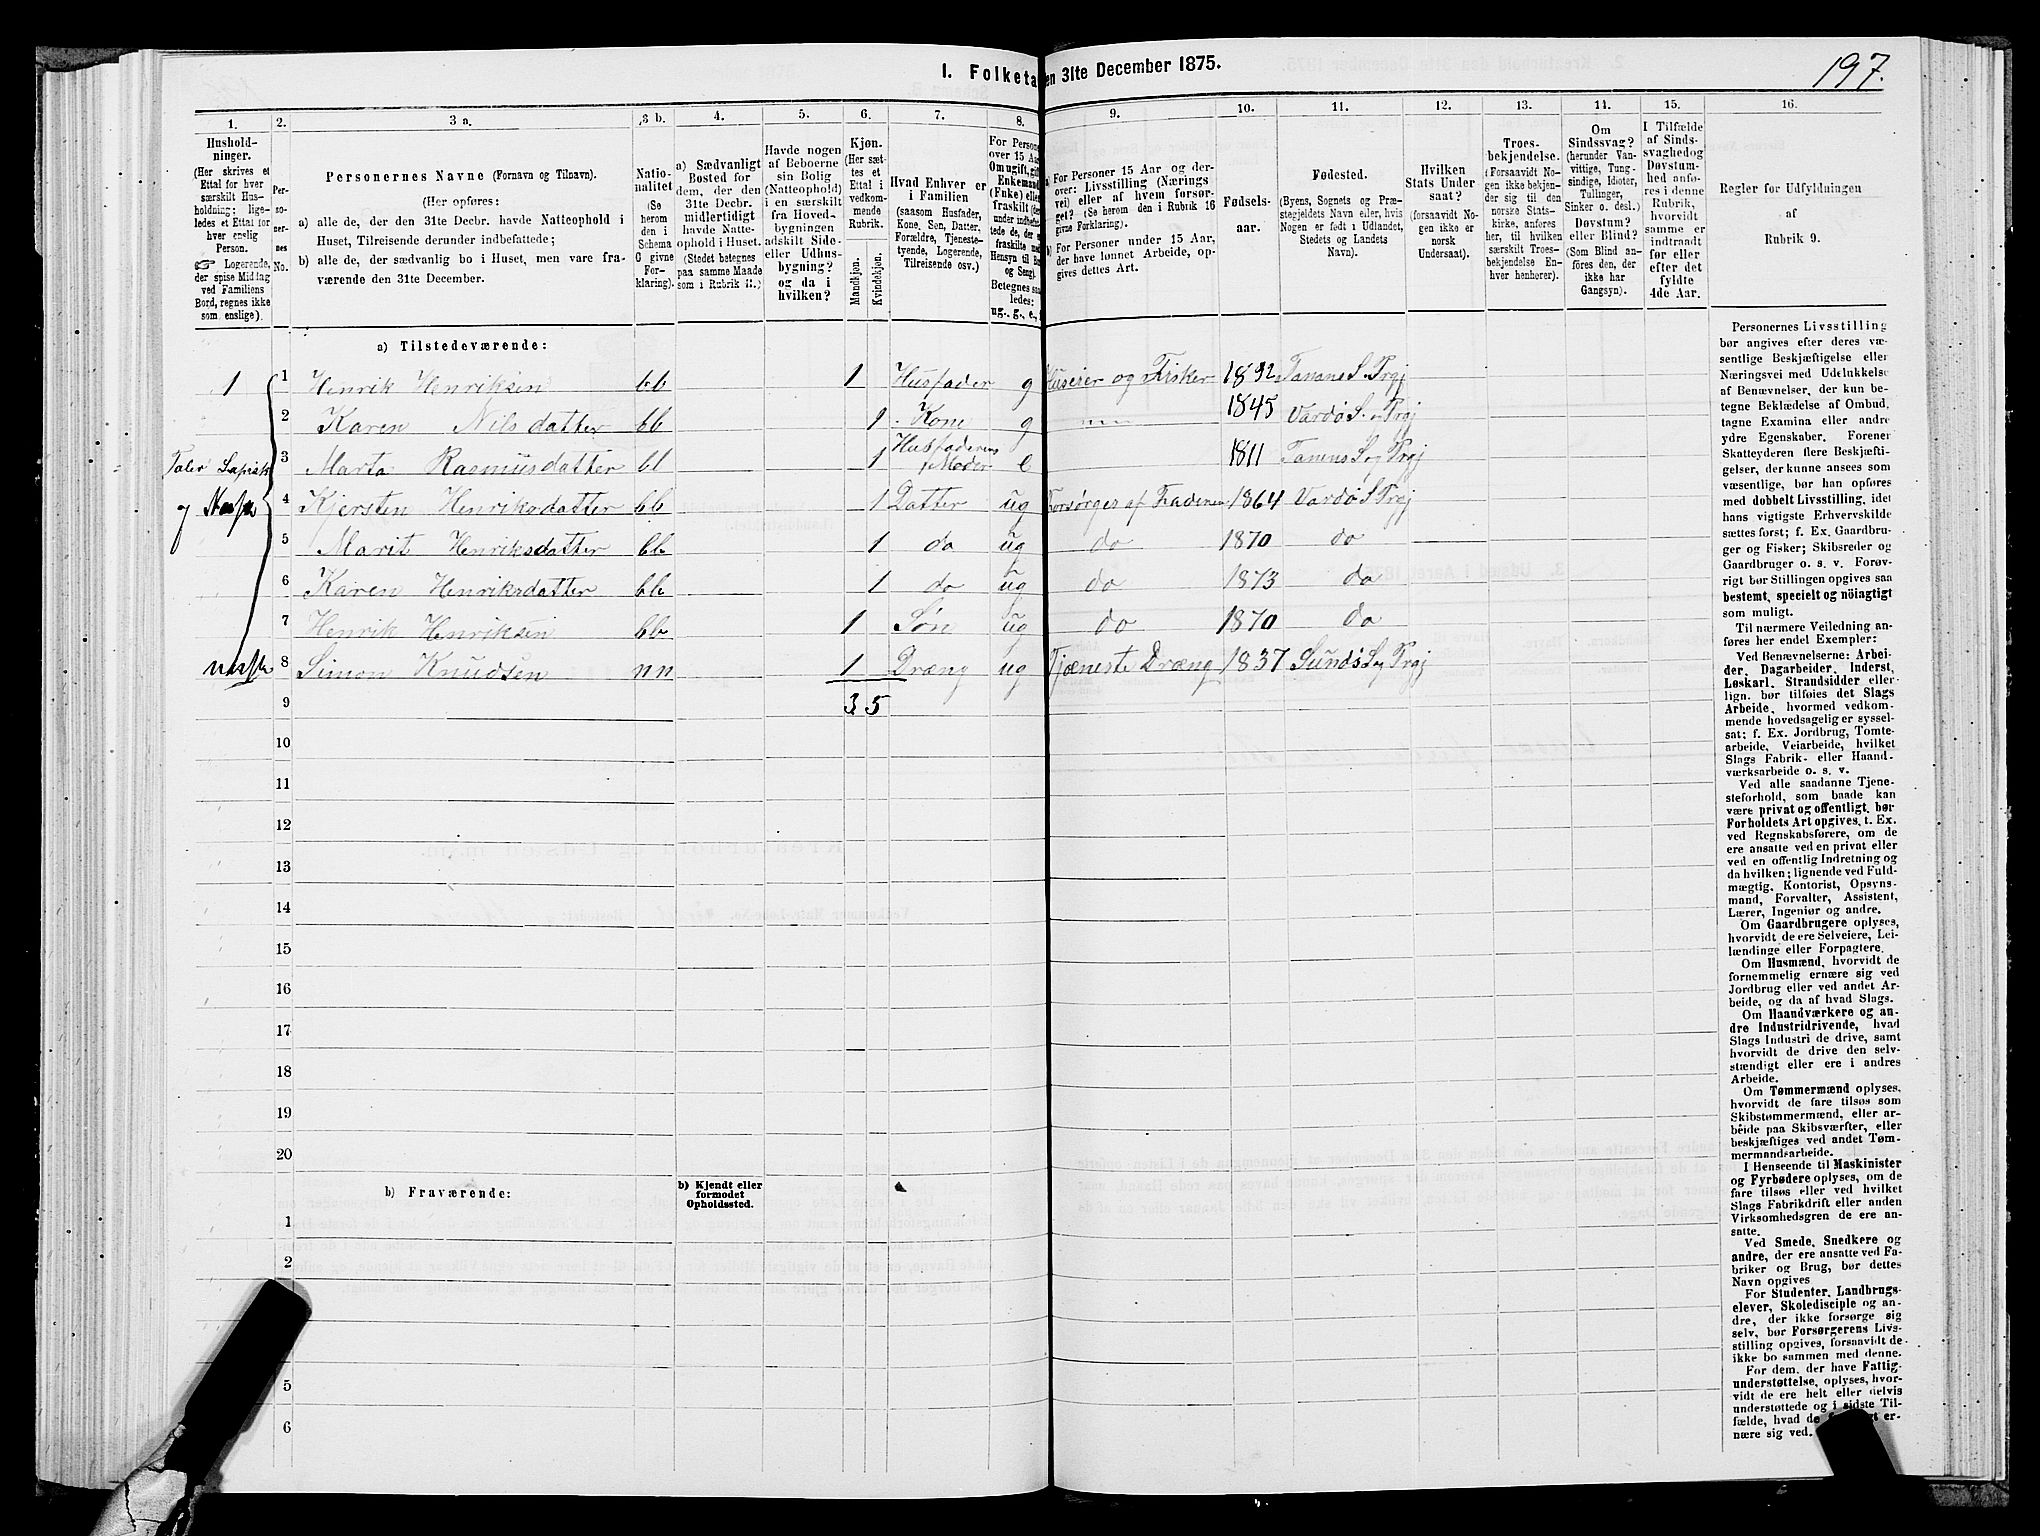 197.
I. Folketa
en 31te December 1875.
1. 2. 3 a. 3 b. 4. 5. 6. 7. 8. 9. 10. 11. 12. 13. 14. 15. 16.
Hushold-
ninger.
(Her skrives et
Ettal for hver
særskilt Hus-
holdning; lige-
ledes et Ettal for
hver enslig
Person.
☞ Logerende,
der spise Middag
ved Familiens
Bord, regnes ikke
som enslige).
Per-
so-
ner-
nes
No.
Personernes Navne (Fornavn og Tilnavn).
(Her opføres:
a) alle de, der den 31te Decbr. havde Natteophold i
Huset, Tilreisende derunder indbefattede;
b) alle de, der sædvanlig bo i Huset, men vare fra-
værende den 31te December.
Natio-
nalitet
(Se
herom
den i
Schema
C givne
For-
klaring).
a) Sædvanligt
Bosted for
dem, der den
31te Decbr.
midlertidigt
havde Natte-
ophold i Huset.
(Stedet betegnes
paa samme Maade
som i Rubrik 11.)
Havde nogen
af Beboerne
sin Bolig
(Natteophold)
i en særskilt
fra Hoved-
bygningen
adskilt Side-
eller Udhus-
bygning?
og da i
hvilken?
Kjøn.
(Her sæt-
tes et
Ettal i
vedkom-
mende
Rubrik.
Mandkjøn.
Kvindekjøn.
Hvad Enhver er
i Familien
(saasom Husfader,
Kone, Søn, Datter,
Forældre, Tjeneste-
tyende, Logerende,
Tilreisende osv.)
For Person
over 15 Aar
Om ugift, gift
Enkemand
(Enke) eller
fraskilt (der-
under indbefat-
tede de, der ere
fraskilte med
Hensyn til Bord
og Seng).
Betegnes saa-
ledes:
ug., g., e.,
a) For Personer 15 Aar og der-
over: Livsstilling (Nærings
vei) eller af hvem forsør-
get? (Se herom den i Rubrik 16
givne Forklaring.)
b) For Personer under 15 Aar,
der have lønnet Arbeide, op-
gives dettes Art.
Fødsels-
aar.
Fødested.
(Byens, Sognets og Præ-
stegjeldets Navn eller, hvis
Nogen er født i Udlandet,
Stedets og Landets
Navn).
Hvilken
Stats Under
saat?
(forsaavidt No-
gen ikke er
norsk
Undersaat).
Troes-
bekjendelse.
(Forsaavidt No-
gen ikke bekjen-
der sig til den
norske Stats-
kirke, anføres
her, til hvilken
særskilt Troes-
bekjendelse En-
hver henhører).
Om
Sindssvag?
(herunder Van-
vittige, Tung-
sindige, Idioter,
Tullinger,
Sinker o. desl.)
Døvstum?
eller Blind?
(Som Blind an-
føres den, der
ikke har
Gangsyn).
I Tilfælde
af Sinds-
svaghedog
Døvstum-
hed anfø-
res i denne
Rubrik,
hvorvidt
samme er
indtraadt
før eller
efter det
fyldte
4de Aar.
Regler for Udfyldningen
af
Rubrik 9.
a) Tilstedeværende:
1 1 Henrik Henriksen bb 1 Husfader g Huseier og Fisker 1832 Tanens S. Prgj
2 Karen Nilsdatter bb 1 Kone g 1845 Vardø S. og Prgj
Taler Lapisk 3 Marta Rasmusdatter bl 1 Husfaderens Moder e 1811 Tanens S og Prgj
og Norsk 4 Kjersten Henriksdatter bb 1 Datter ug Forsørges af Faderen 1864 Vardø S Prgj
5 Marit Henriksdatter bb 1 do ug do 1870 do
6 Karen Henriksdatter bb 1 do ug do 1873 do
7 Henrik Henriksen bb 1 Søn ug do 1870 do
norsk 8 Simon Knudsen nn 1 Dræng ug Tjeneste Dræng 1837 Sundø S og Prgj
9 3 5
10
11
12
13
14
15
16
17
18
19
20
b) Fraværende:
b) Kjendt eller
formodet
Opholdssted.
1
2
5
6
Personernes Livsstilling
bør angives efter deres væ-
sentlige Beskjæftigelse eller
Næringsvei med Udelukkelse
af Benævnelser, der kun be-
tegne Beklædelse af Ombud,
tagne Examina eller andre
ydre Egenskaber. Forener
Skatteyderen flere Beskjæfti-
gelser, der kunne ansees som
væsentlige, bør han opføres
med dobbelt Livsstilling, idet
hans vigtigste Erhvervskilde
sættes først; f. Ex. Gaardbru-
ger og Fisker; Skibsreder og
Gaardbruger o. s. v. Forøv-
rigt bør Stillingen opgives saa
bestemt, specielt og nöiagtigt
som muligt.
Til nærmere Veiledning an-
føres her endel Exempler:
Ved Benævnelserne: Arbei-
der, Dagarbeider, Inderst,
Løskarl, Strandsidder eller
lign. bør tilføies det Slags
Arbeide, hvormed vedkom-
mende hovedsagelig er syssel-
sat; f. Ex. Jordbrug, Tomte-
arbeide, Veiarbeide, hvilket
Slags Fabrik- eller Haand-
værksarbeide o. s. v.
Ved alle saadanne Tjene-
steforhold, som baade kan
være privat og offentligt, bør
Forholdets Art opgives, t. Ex.
ved Regnskabsførere, om de
ere ansatte ved en privat eller
ved en offentlig Indretning og
da hvilken; lignende ved Fuld-
mægtig, Kontorist, Opsyns-
mand, Forvalter, Assistent,
Lærer, Ingeniør og andre.
Om Gaardbrugere oplyses,
hvorvidt de ere Selveiere, Lei-
lændinge eller Forpagtere.
Om Husmænd, hvorvidt de
fornemmelig ernære sig ved
Jordbrug eller ved andet Ar-
beide, og da af hvad Slags.
Om Haandværkere og an-
dre Industridrivende, hvad
Slags Industri de drive, samt
hvorvidt de drive den selv-
stændigt eller ere i andres
Arbeide.
Om Tømmermænd oplyses,
hvorvidt de fare tilsøs som
Skibstømmermænd, eller ar-
beide paa Skibsværfter, eller
beskjæftiges ved andet Tøm-
mermandsarbeide.
I Henseende til Maskinister
og Fyrbødere oplyses, om de
fare tilsøs eller ved hvilket
Slags Fabrikdrift eller anden
Virksomhedsgren de ere an-
satte.
Ved Smede, Snedkere og
andre, der ere ansatte ved Fa-
briker og Brug, bør dettes
Navn opgives
For Studenter, Landbrugs-
elever, Skoledisciple og an-
dre, der ikke forsørge sig
selv, bør Forsørgerens Livs-
stilling opgives, forsaavidt de
ikke bo sammen med denne.
For dem, der have Fattig-
understøttelse, oplyses, hvor-
vidt de ere helt eller delvis
understøttede og i sidste Til-
fælde, hvad de er-
nære sig ved.